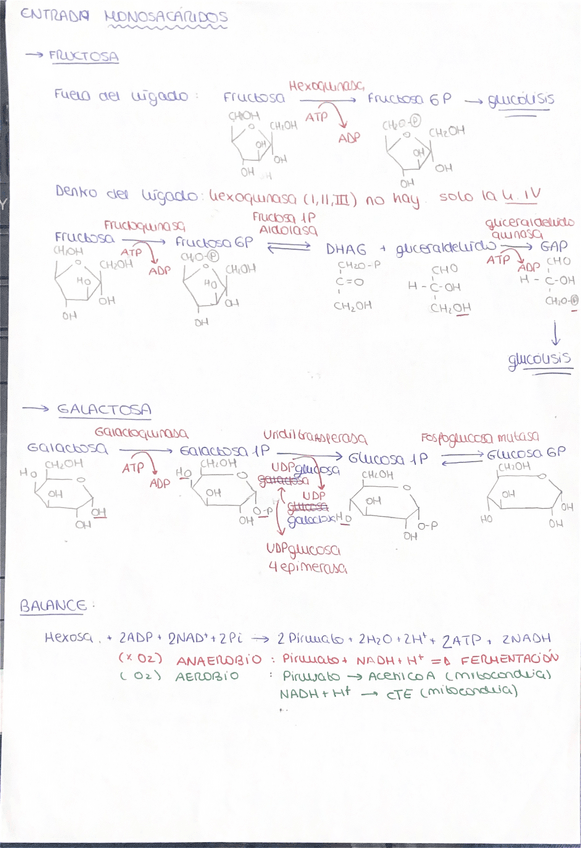 ENTRADA MONOSACÁRIDOS
→ FRUCTOSA
Hexoquinasa
Fuera del hígado: Fructosa → Fructosa 6P → glucólisis
ATP ADP
CH2OH CH2OH OH OH OH
CH2O-P CH2OH OH OH OH
Dentro del hígado: hexoquinasa (I, II, III) no hay. solo la h. IV
Fructoquinasa Fructosa 1P Aldolasa gliceraldehido quinasa
Fructosa → Fructosa 6P ⇌ DHAG + gliceraldehido → GAP
ATP ADP ATP ADP
CH2OH CH2OH HO OH OH
CH2O-P CH2OH HO OH OH
CH2O-P C=O CH2OH
CHO H-C-OH CH2OH
CHO H-C-OH CH2O-P
glucólisis
→ GALACTOSA
Galactoquinasa Uridiltransferasa Fosfoglucosa mutasa
Galactosa → Galactosa 1P → Glucosa 1P ⇌ Glucosa 6P
ATP ADP
UDPglucosa
galactosa
UDP
glucosa
galactosa
HO CH2OH OH OH OH
HO CH2OH OH O-P OH
CH2OH OH HO O-P OH
CH2OH OH HO OH OH
UDPglucosa
4 epimerasa
BALANCE:
Hexosa . + 2ADP + 2NAD+ + 2Pi → 2 Piruvato + 2H2O + 2H+ + 2ATP + 2NADH
(x O2) ANAEROBIO : Piruvato + NADH + H+ => FERMENTACIÓN
( O2) AEROBIO : Piruvato → AcetilCoA (mitocondria)
NADH + H+ → CTE (mitocondria)